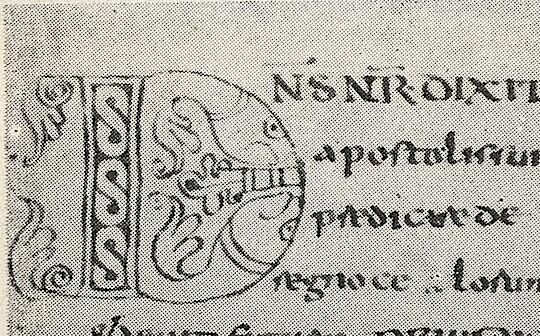 DN̄S N̄R DIXIT
apostolis sui
predicate de
regno ce lorum